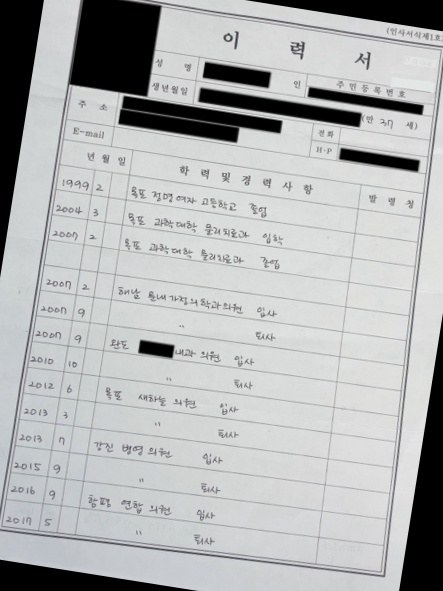 (인사서식제1호
이 력 서
성 명 인 주민등록번호
생년월일 (만 37 세)
주 소 전화
E-mail H·P
년 월 일 학력및경력사항 발령청
1999 2 목포 정명여자 고등학교 졸업
2004 3 목포 과학대학 물리치료과 입학
2007 2 목포 과학대학 물리치료과 졸업
2007 2 해남 가정의학과의원 입사
2007 9 〃 퇴사
2007 9 완도 내과 의원 입사
2010 10 〃 퇴사
2012 6 목포 새하늘 의원 입사
2013 3 〃 퇴사
2013 7 강진 병영 의원 입사
2015 9 〃 퇴사
2016 9 함평 연합 의원 입사
2017 5 〃 퇴사